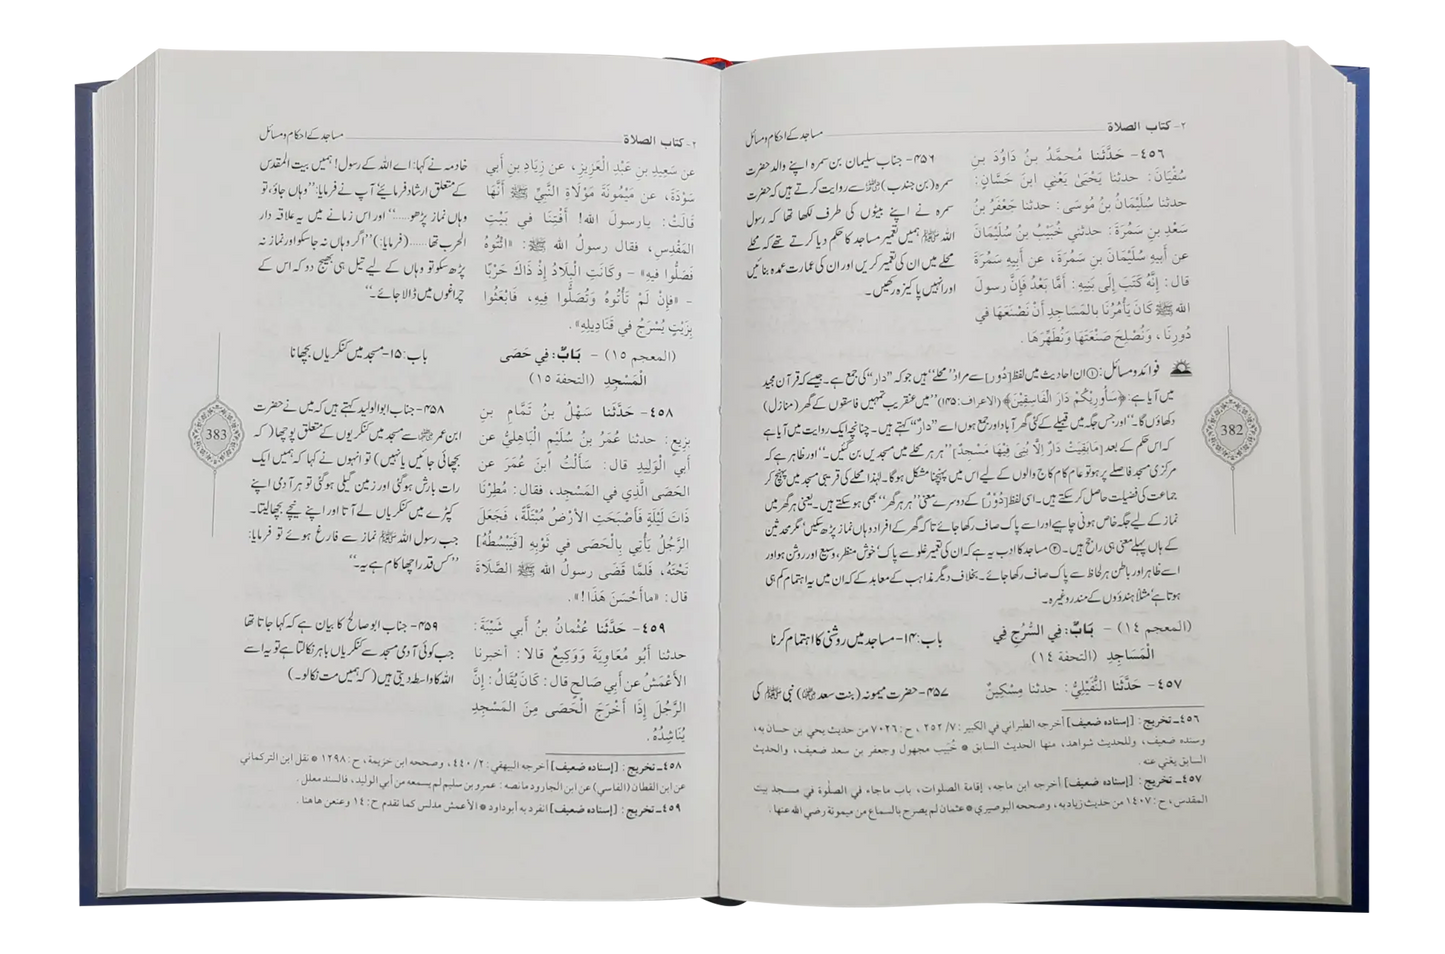 ٢- كتاب الصلاة
مساجد کے احکام و مسائل
٤٥٦- حَدَّثَنا مُحمَّدُ بنُ دَاوُدَ بنِ
سُفْيَانَ: حدثنا يَحْيَىٰ يَعْني ابنَ حَسَّانَ:
حدثنا سُلَيْمَانُ بنُ مُوسَى: حدثنا جَعْفَرُ بنُ
سَعْدِ بنِ سَمُرَةَ: حدثني خُبَيْبُ بنُ سُلَيْمَانَ
عن أبيهِ سُلَيْمَانَ بنِ سَمُرَةَ، عن أبيهِ سَمُرَةَ
قال: إنَّهُ كَتَبَ إلى بَنِيهِ: أمَّا بَعْدُ فَإنَّ رسولَ
الله ﷺ كَانَ يَأْمُرُنَا بالمَسَاجِدِ أنْ نَصْنَعَهَا في
دُورِنَا، وَنُصْلِحَ صَنْعَتَهَا وَنُطَهِّرَهَا.
۴۵۶- جناب سلیمان بن سمرہ اپنے والد حضرت
سمرہ (بن جندب) رضی اللہ عنہ سے روایت کرتے ہیں کہ حضرت
سمرہ نے اپنے بیٹوں کی طرف لکھا تھا کہ رسول
اللہ ﷺ ہمیں تعمیر مساجد کا حکم دیا کرتے تھے کہ محلے
محلے میں ان کی تعمیر کریں اور ان کی عمارت عمدہ بنائیں
اور انہیں پاکیزہ رکھیں۔
فوائد و مسائل: ① ان احادیث میں لفظ [دُور] سے مراد ’’محلے‘‘ ہیں جو کہ ’’دار‘‘ کی جمع ہے۔ جیسے کہ قرآن مجید
میں آیا ہے: ﴿سَأُورِيكُمْ دَارَ الْفَاسِقِينَ﴾ (الاعراف:۱۴۵) ’’میں عنقریب تمہیں فاسقوں کے گھر (منازل)
دکھاؤں گا۔‘‘ اور جس جگہ میں قبیلے کے کئی گھر آباد اور جمع ہوں اسے ’’دار‘‘ کہتے ہیں۔ چنانچہ ایک روایت میں آیا ہے
کہ اس حکم کے بعد [مَابَقِيَتْ دَارٌ إِلَّا بُنِيَ فِيهَا مَسْجِدٌ] ’’ہر ہر محلے میں مسجدیں بن گئیں۔‘‘ اور ظاہر ہے کہ
مرکزی مسجد فاصلے پر ہو تو عام کام کاج والوں کے لیے اس میں پہنچنا مشکل ہوگا۔ لہٰذا محلے کی قریبی مسجد میں پہنچ کر
جماعت کی فضیلت حاصل کر سکتے ہیں۔ اسی لفظ [دُورٌ] کے دوسرے معنی ’’ہر ہر گھر‘‘ بھی ہو سکتے ہیں۔ یعنی ہر گھر میں
نماز کے لیے جگہ خاص ہونی چاہیے اور اسے پاک صاف رکھا جائے تاکہ گھر کے افراد وہاں نماز پڑھ سکیں‘ مگر محدثین
کے ہاں پہلے معنی ہی راجح ہیں۔ ② مساجد کا ادب یہ ہے کہ ان کی تعمیر غلو سے پاک‘ خوش منظر‘ وسیع اور روشن ہو اور
اسے ظاہر اور باطن ہر لحاظ سے پاک صاف رکھا جائے۔ بخلاف دیگر مذاہب کے معابد کے کہ ان میں یہ اہتمام کم ہی
ہوتا ہے مثلاً ہندوؤں کے مندر وغیرہ۔
(المعجم ١٤) - بَابٌ: فِي السُّرُجِ فِي
الْمَسَاجِدِ (التحفة ١٤)
باب:۱۴- مساجد میں روشنی کا اہتمام کرنا
٤٥٧- حَدَّثَنا النُّفَيْلِيُّ: حدثنا مِسْكِينٌ
۴۵۷- حضرت میمونہ (بنت سعد رضی اللہ عنہا) نبی ﷺ کی
٤٥٦ـ تخريج: [إسناده ضعيف] أخرجه الطبراني في الكبير: ٧/ ٢٥٢، ح: ٧٠٢٦ من حديث يحي بن حسان به،
وسنده ضعيف، وللحديث شواهد، منها الحديث السابق * خُبَيب مجهول وجعفر بن سعد ضعيف، والحديث
السابق يغني عنه.
٤٥٧ـ تخريج: [إسناده ضعيف] أخرجه ابن ماجه، إقامة الصلوات، باب ماجاء في الصلوة في مسجد بيت
المقدس، ح: ١٤٠٧ من حديث زيادبه، وصححه البوصيري * عثمان لم يصرح بالسماع من ميمونة رضي الله عنها.
382
٢- كتاب الصلاة
مساجد کے احکام و مسائل
عن سَعِيدِ بنِ عَبْدِ الْعَزِيزِ، عن زِيَادِ بنِ أبي
سَوْدَةَ، عن مَيْمُونَةَ مَوْلَاةِ النَّبيِّ ﷺ أنَّهَا
قَالَتْ: يارسولَ الله! أفْتِنَا في بَيْتِ
المَقْدِسِ، فقال رسولُ الله ﷺ: «ائْتُوهُ
فَصَلُّوا فِيهِ» - وكَانَتِ الْبِلَادُ إذْ ذَاكَ حَرْبًا
- «فإنْ لَمْ تَأْتُوهُ وَتُصَلُّوا فِيهِ، فَابْعَثُوا
بِزَيْتٍ يُسْرَجُ في قَنَادِيلِهِ».
خادمہ نے کہا: اے اللہ کے رسول! ہمیں بیت المقدس
کے متعلق ارشاد فرمایئے‘ آپ نے فرمایا: ’’وہاں جاؤ، تو
وہاں نماز پڑھو.....‘‘ اور اس زمانے میں یہ علاقہ دار
الحرب تھا......(فرمایا:) ’’اگر وہاں نہ جا سکو اور نماز نہ
پڑھ سکو تو وہاں کے لیے تیل ہی بھیج دو کہ اس کے
چراغوں میں ڈالا جائے۔‘‘
(المعجم ١٥) - بَابٌ: فِي حَصَى
الْمَسْجِدِ (التحفة ١٥)
باب:۱۵- مسجد میں کنکریاں بچھانا
٤٥٨- حَدَّثَنا سَهْلُ بنُ تَمَّامِ بنِ
بَزِيعٍ: حدثنا عُمَرُ بنُ سُلَيْمٍ الْبَاهِلِيُّ عن
أبي الْوَلِيدِ قال: سَأَلْتُ ابنَ عُمَرَ عن
الحَصَى الَّذِي في المَسْجِدِ، فقال: مُطِرْنَا
ذَاتَ لَيْلَةٍ فَأصْبَحَتِ الأرْضُ مُبْتَلَّةً، فَجَعَلَ
الرَّجُلُ يَأْتِي بِالْحَصَى في ثَوْبِهِ [فَيَبْسُطُهُ]
تَحْتَهُ، فَلمَّا قَضَى رسولُ الله ﷺ الصَّلَاةَ
قال: «ماأحْسَنَ هَذَا!».
۴۵۸- جناب ابوالولید کہتے ہیں کہ میں نے حضرت
ابن عمر رضی اللہ عنہما سے مسجد میں کنکریوں کے متعلق پوچھا (کہ
بچھائی جائیں یا نہیں) تو انہوں نے کہا کہ ہمیں ایک
رات بارش ہو گئی اور زمین گیلی ہو گئی تو ہر آدمی اپنے
کپڑے میں کنکریاں لے آتا اور اپنے نیچے بچھا لیتا۔
جب رسول اللہ ﷺ نماز سے فارغ ہوئے تو فرمایا:
’’کس قدر اچھا کام ہے یہ۔‘‘
٤٥٩- حَدَّثَنا عُثْمانُ بنُ أبي شَيْبَةَ:
حدثنا أبُو مُعَاوِيَةَ وَوَكِيعٌ قالا: أخبرنا
الأعْمَشُ عن أبي صَالحٍ قال: كَانَ يُقَالُ: إنَّ
الرَّجُلَ إذَا أخْرَجَ الْحَصَى مِنَ المَسْجِدِ
يُنَاشِدُهُ.
۴۵۹- جناب ابو صالح کا بیان ہے کہ کہا جاتا تھا
جب کوئی آدمی مسجد سے کنکریاں باہر نکالتا ہے تو یہ اسے
اللہ کا واسطہ دیتی ہیں (کہ ہمیں مت نکالو۔)
٤٥٨ـ تخريج: [إسناده ضعيف] أخرجه البيهقي: ٢/ ٤٤٠، وصححه ابن خزيمة، ح: ١٢٩٨ * نقل ابن التركماني
عن ابن القطان (الفاسي) عن ابن الجارود مانصه: عمرو بن سليم لم يسمعه من أبي الوليد، فالسند معلل.
٤٥٩ـ تخريج: [إسناده ضعيف] انفرد به أبوداود * الأعمش مدلس كما تقدم ح: ١٤ وعنعن هاهنا.
383